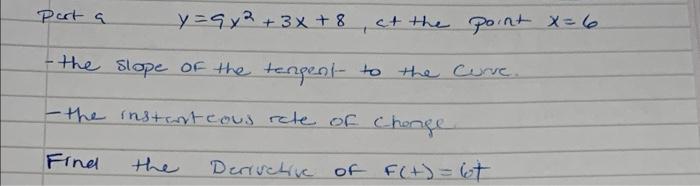 Part a y=9x²+3x+8, at the point x=6
- the slope of the tangent to the curve.
- the instanteous rate of change
Find the Derivative of F(t)=6t